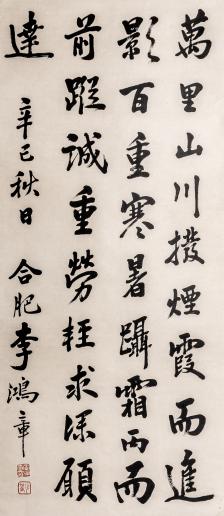 萬里山川撥煙霞而進
影百重寒暑躡霜雨而
前蹤誠重勞輕求深願
達
辛巳秋日 合肥李鴻章